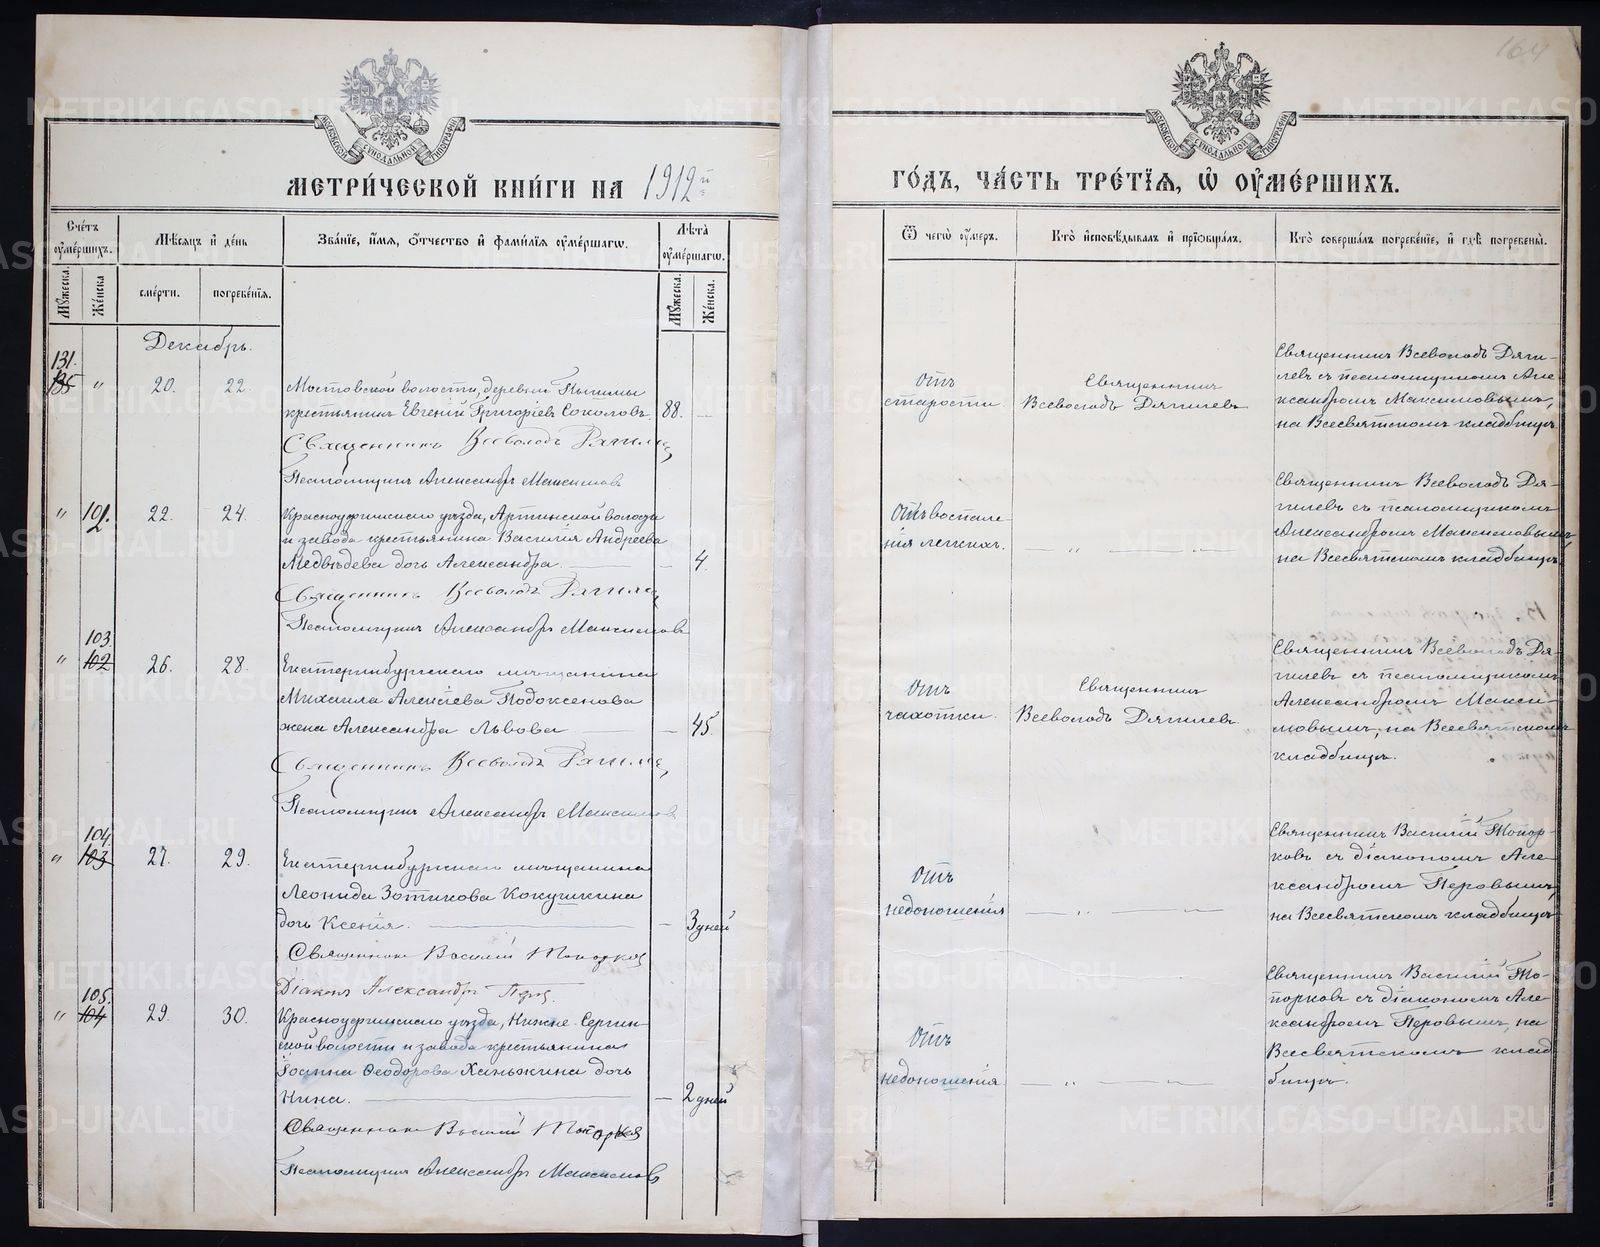 164
МОСКОВСКОЙ СѴНОДАЛЬНОЙ ТИПОГРАФІИ
МОСКОВСКОЙ СѴНОДАЛЬНОЙ ТИПОГРАФІИ
МЕТРИ́ЧЕСКОЙ КНИ́ГИ НА 1912й
ГО́ДЪ, ЧА́СТЬ ТРЕ́ТЇѦ, Ѡ҆ ОУ҆МЕ́РШИХЪ.
Сче́тъ оу҆ме́ршихъ.
Мѣ́сяцъ и҆ де́нь
Зва́нїе, и҆́мѧ, ѻ҆́тчество и҆ фами́лїѧ оу҆ме́ршагѡ.
Лѣ́та оу҆ме́ршагѡ.
Мꙋ́жеска.
Же́нска
сме́рти.
погребе́нїѧ.
Мꙋ́жеска.
Же́нска.
Ѿ чегѡ̀ оу҆́меръ.
Кто̀ и҆сповѣ́дывалъ и҆ прїѡбща́лъ.
Кто̀ соверша́лъ погребе́нїе, и҆ гдѣ̀ погребены̀.
Декабрь.
131.
135 " 20. 22.
Мостовской волости, деревни Пышмы
крестьянинъ Евгеній Григоріевъ Соколовъ. 88. —
Священникъ Всеволодъ Дягилев
Псаломщикъ Александръ Максимовъ
отъ
старости.
Священникъ
Всеволодъ Дягилевъ
Священникъ Всеволодъ Дяги-
левъ съ псаломщикомъ Але
ксандромъ Максимовымъ,
на Всесвятскомъ кладбищѣ.
" 102. 22. 24.
Красноуфимскаго уѣзда, Артинской волости
и завода крестьянина Василія Андреева
Медвѣдева дочь Александра. — — 4.
Священникъ Всеволодъ Дягилев
Псаломщикъ Александръ Максимовъ
Отъ воспале
нія легкихъ. — " — " —
Священникъ Всеволодъ Дя-
гилевъ съ псаломщикомъ
Александромъ Максимовымъ,
на Всесвятскомъ кладбищѣ.
103.
" 102 26. 28.
Екатеринбургскаго мѣщанина
Михаила Алексіева Подоксенова
жена Александра Львова — — 45.
Священникъ Всеволодъ Дягилев
Псаломщикъ Александръ Максимовъ
Отъ
чахотки.
Священникъ
Всеволодъ Дягилевъ.
Священникъ Всеволодъ Дя-
гилевъ съ псаломщикомъ
Александромъ Макси-
мовымъ, на Всесвятскомъ
кладбищѣ.
104.
" 103 27. 29.
Екатеринбургскаго мѣщанина
Леонида Зотикова Кокушкина
дочь Ксенія. — — 3 дней
Священникъ Василій Топорков
Діаконъ Александръ
Отъ
недоношенія — " — " —
Священникъ Василій Топор-
ковъ съ діакономъ Але-
ксандромъ Перовымъ,
на Всесвятскомъ кладбищѣ.
105.
" 104 29. 30.
Красноуфимскаго уѣзда, Нижне-Сергин-
ской волости и завода крестьянина
Іоанна Ѳеодорова Ханьжина дочь
Нина. — — 2 дней
Священникъ Василій Топорков
Псаломщикъ Александръ Максимовъ
Отъ
недоношенія — " — " —
Священникъ Василій То-
порковъ съ діакономъ Але
ксандромъ Перовымъ, на
Всесвятскомъ клад
бищѣ.
METRIKI.GASO-URAL.RU